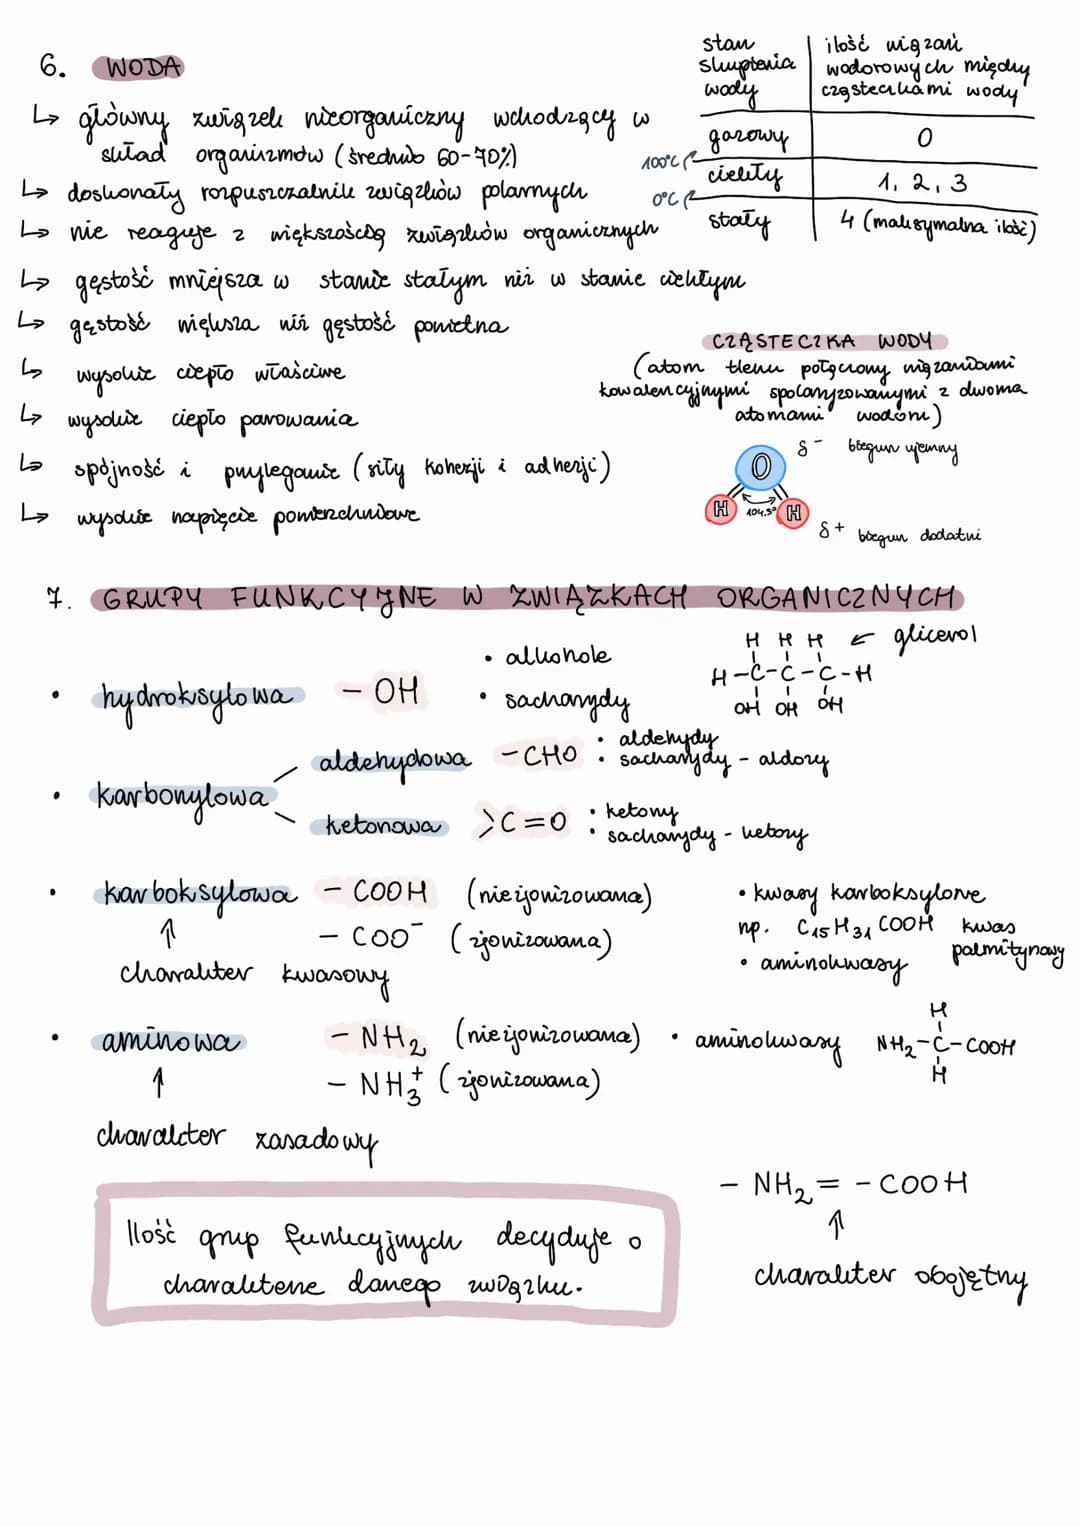 6. WODA
↳ główny związek nieorganiczny wchodzący w
skład organizmów (średnio 60-70%)
↳ doskonały rozpuszczalnik związków polarnych
↳ nie reaguje z większością związków organicznych
↳ gęstość mniejsza w stanie stałym niż w stanie ciekłym
↳ gęstość większa niż gęstość powietrza
↳ wysokie ciepło właściwe
↳ wysokie ciepło parowania
↳ spójność i przyleganie (siły kohezji i adhezji)
↳ wysokie napięcie powierzchniowe
stan skupienia wody | ilość wiązań wodorowych między cząsteczkami wody
gazowy | 0
100°C
ciekły | 1, 2, 3
0°C
stały | 4 (maksymalna ilość)
CZĄSTECZKA WODY
(atom tlenu połączony wiązaniami
kowalencyjnymi spolaryzowanymi z dwoma
atomami wodoru)
δ- biegun ujemny
O
H 104,5° H
δ+ biegun dodatni
7. GRUPY FUNKCYJNE W ZWIĄZKACH ORGANICZNYCH
• hydroksylowa - OH
• alkohole
• sacharydy
H H H ← glicerol
H-C-C-C-H
OH OH OH
• karbonylowa
aldehydowa -CHO
• aldehydy
• sacharydy - aldozy
ketonowa >C=O
• ketony
• sacharydy - ketozy
• karboksylowa - COOH (niezjonizowana)
↑ - COO⁻ (zjonizowana)
charakter kwasowy
• kwasy karboksylowe
np. C₁₅H₃₁COOH kwas
palmitynowy
• aminokwasy
• aminowa - NH₂ (niezjonizowana)
↑ - NH₃⁺ (zjonizowana)
charakter zasadowy
• aminokwasy
H
NH₂-C-COOH
H
Ilość grup funkcyjnych decyduje o
charakterze danego związku.
- NH₂ = - COOH
↑
charakter obojętny